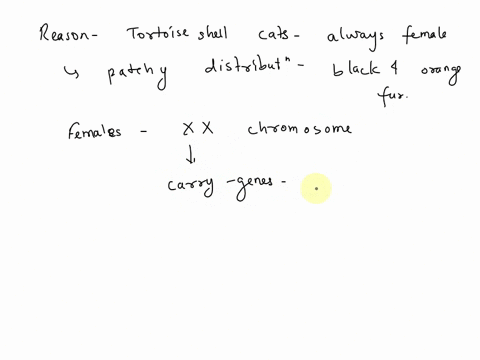 Reason - Tortoise shell cats - always female
↳ patchy distributⁿ - black & orange
fur.
females - XX chromosome
↓
carry - genes -